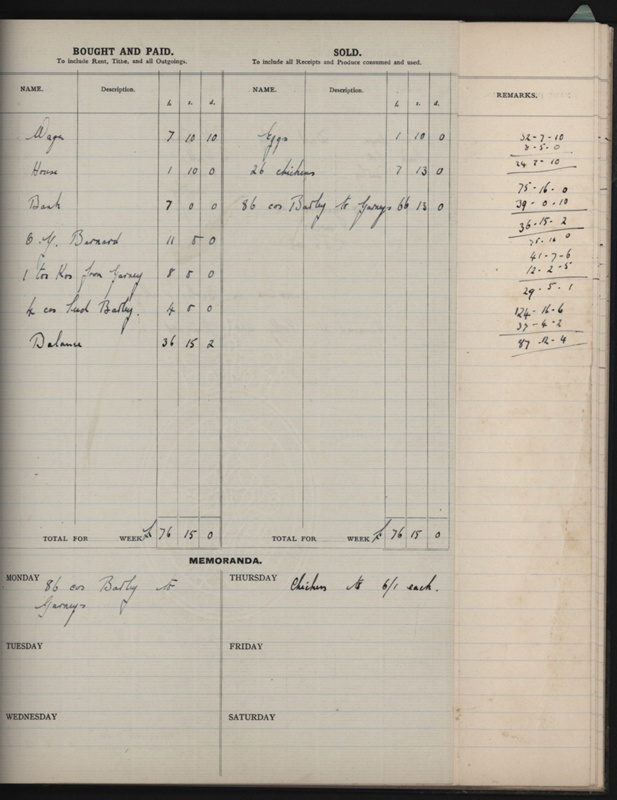 BOUGHT AND PAID.
To include Rent, Tithe, and all Outgoings.
SOLD.
To include all Receipts and Produce consumed and used.
NAME. Description. £. s. d. NAME. Description. £. s. d. REMARKS.
Wages 7 10 10 Eggs 1 10 0
House 1 10 0 26 chickens 7 13 0
Bank 7 0 0 86 cos Barley to Garneys 66 12 0
Barnard 11 5 0
1 from Garney 8 5 0
4 cos Seed Barley. 4 5 0
Balance 36 15 2
32-7-10
8-5-0
24 2-10
75-16-0
39-0-10
36-15-2
75-16 0
41-7-6
12-2-5
29-5-1
124-16-6
37-4-2
87-12-4
TOTAL FOR WEEK £ 76 15 0 TOTAL FOR WEEK £ 76 15 0
MEMORANDA.
MONDAY 86 cos Barley to
Garneys
THURSDAY Chickens to 6/1 each.
TUESDAY
FRIDAY
WEDNESDAY
SATURDAY